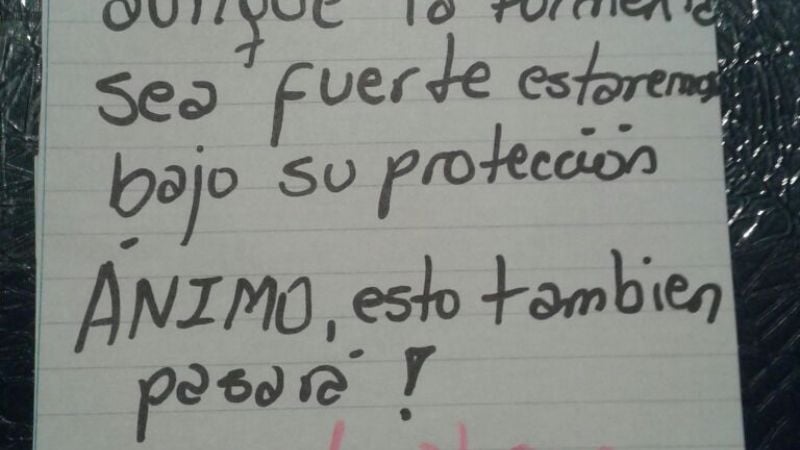 aunque la tormenta
sea fuerte estaremos
bajo su protección
ÁNIMO, esto tambien
pasará!